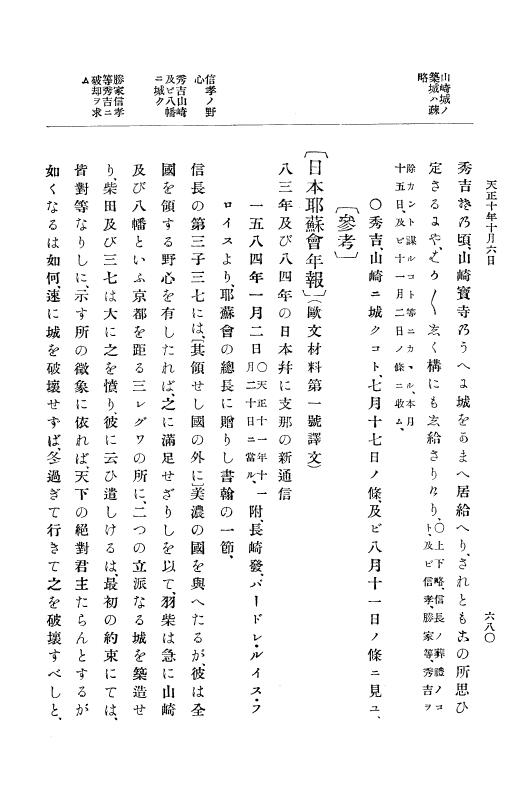 天正十年十月六日
六八〇
山崎城ノ
築城ハ疎
略
信孝ノ野
心
秀吉山崎
及ビ八幡
ニ城ク
勝家信孝
等秀吉ニ
破却ヲ求
ム
秀吉その頃、山崎寶寺のうへに城をかまへ居給へり、されとも古の所思ひ
定さるにや、はか〳〵しく構にもし給さりけり、○上下略、信長ノ葬禮ノコト、及ビ信孝、勝家等、秀吉ヲ
除カント謀ルコト等ニカヽル、本月十五日、及ビ十一月二日ノ條ニ收ム、
○秀吉、山崎ニ城クコト、七月十七日ノ條、及ビ八月十一日ノ條ニ見ユ、
〔參考〕
〔日本耶蘇會年報〕(歐文材料第一號譯文)
八三年及び八四年の日本幷に支那の新通信
一五八四年一月二日○天正十一年十一月二十日ニ當ル、附、長崎發、パードレ・ルイス・フ
ロイスより、耶蘇會の總長に贈りし書翰の一節、
信長の第三子三七には、〔其領せし國の外に〕美濃の國を與へたるが、彼は全
國を領する野心を有したれば、之に滿足せざりしを以て、羽柴は急に山崎
及び八幡といふ京都を距る三レグワの所に、二つの立派なる城を築造せ
り、柴田及び三七は大に之を憤り、彼に云ひ遣しけるは、最初の約束にては、
皆對等なりしに、示す所の徵象に依れば、天下の絕對君主たらんとするが
如くなるは如何、速に城を破壞せずば、冬過ぎて行きて之を破壞すべしと、